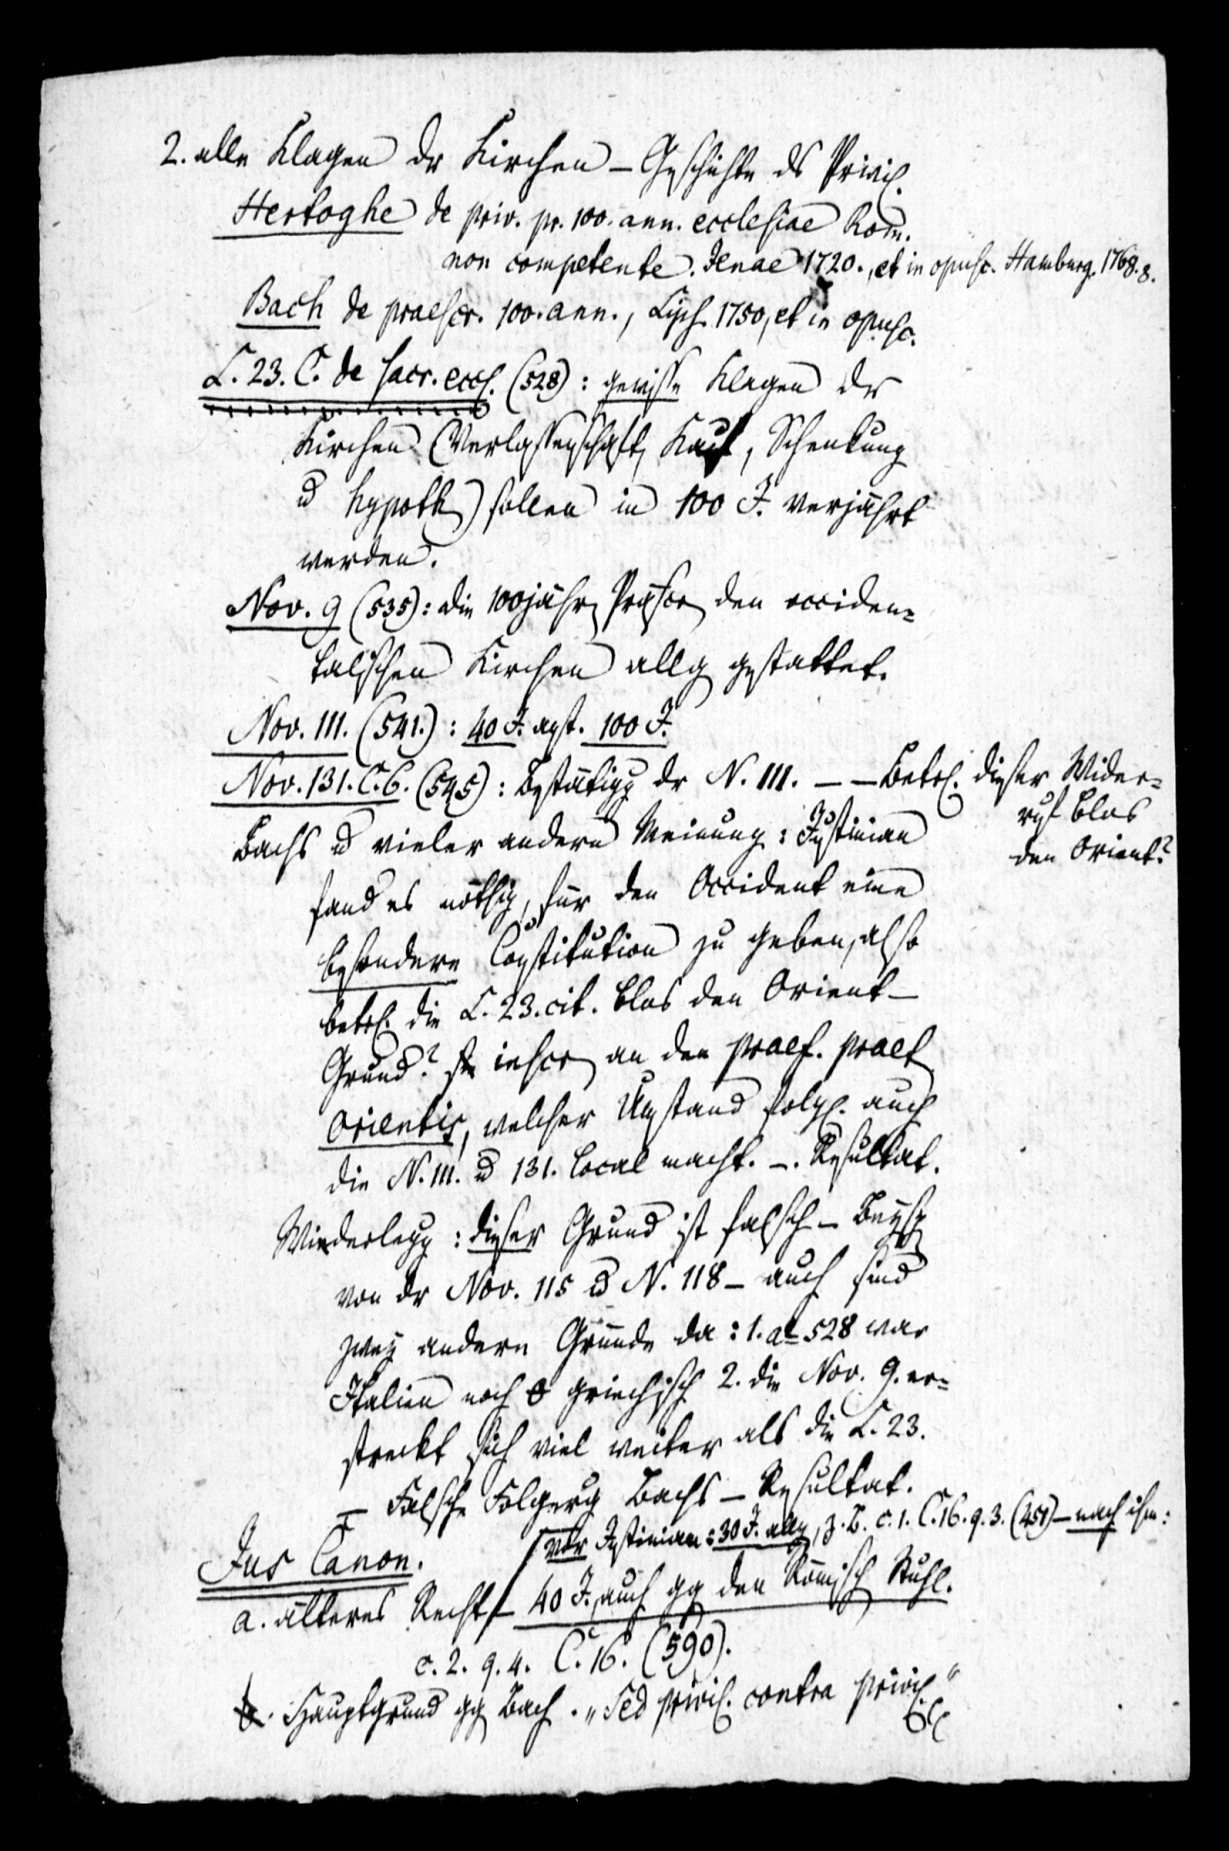 2. alle Klagen dr Kirchen – Geschichte ds Privil.
Hertoghe de priv. pr. 100. ann. ecclesiae Rom.
non competente. Jenae 1720., et in opusc. Hamburg. 1768. 8.
Bach de praescr. 100. ann., Lips. 1750, et in opusc.
L. 23. C. de sacr. eccl. (528): gewisse Klagen dr
Kirchen (Verlassenschaft, Kauf, Schenkung
u hypoth) sollen in 100 J. verjährt
werden.
Nov. 9 (535): die 100jähr Präscr den occiden=
talischen Kirchen allg gestattet.
Nov. 111. (541.): 40 J. anst. 100 J.
Nov. 131. C. 6. (545): Bestätigg dr N. 111. – – Betrf. dieser Wider=
ruf blos
den Orient?
Bachs u vieler andern Meinung: Justinian
fand es nöthig, für den Occident eine
besondere Constitution zu geben, also
betrf. die L. 23. cit. blos den Orient –
Grund? inscr an den praef. praet
orientis, welcher Umstand folgl. auch
die N. 111. u 131. local macht. –. Resultat.
Wiederlegg: dieser Grund ist falsch – Beysp
von dr Nov. 115 u N. 118 – auch sind
zwey andere Gründe da: 1. ao 528 war
Italien noch griechisch 2. die Nov. 9. er=
streckt sich viel weiter als die L. 23.
– Falsche Folgerg Bachs – Resultat.
vor Justinian: 30 J. allg, z. B. c. 1. C. 16. q. 3. (451) – nach ihm:
Jus Canon.
a. älteres Recht – 40 J., auch gg den Römisch Stuhl.
c. 2. q. 4. C. 16. (590).
b. Hauptgrund gg Bach. „Sed privil. contra privil“